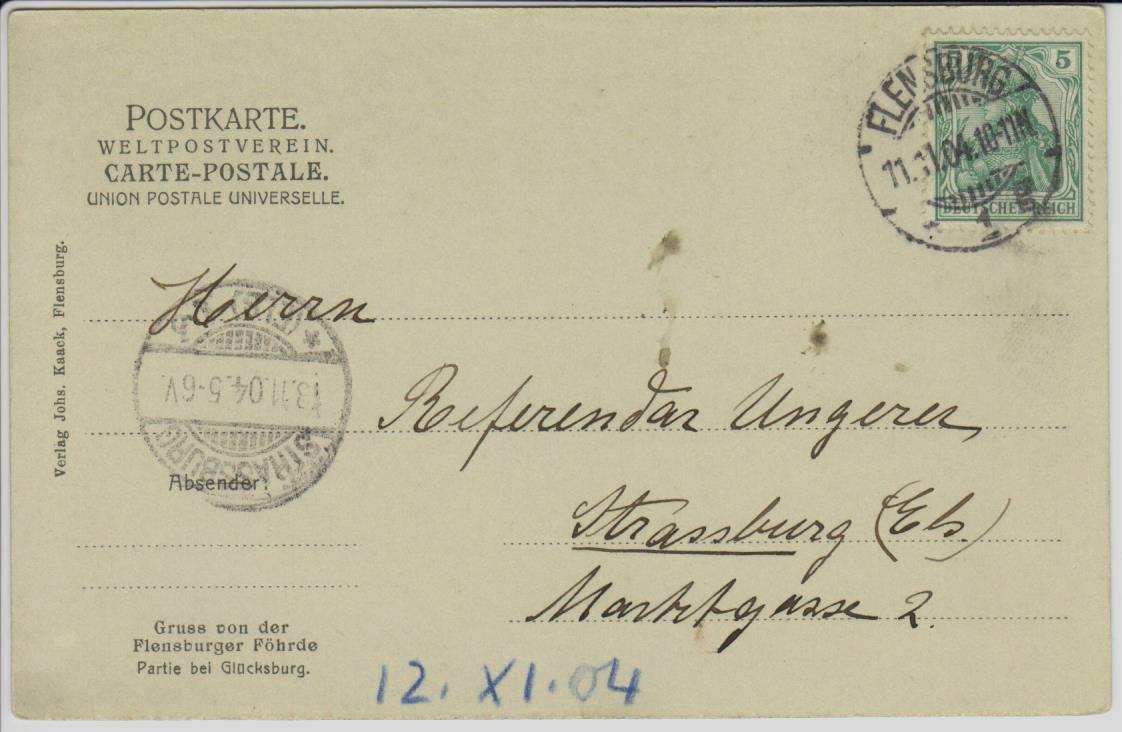 POSTKARTE.
WELTPOSTVEREIN.
CARTE-POSTALE.
UNION POSTALE UNIVERSELLE.
5
DEUTSCHES REICH
FLENSBURG
11.11.04.10-11N
* 1
Verlag Johs. Kaack, Flensburg.
Herrn
Referendar Ungerer
Strassburg (Els.)
Marktgasse 2.
STRASSBURG
13.11.04.5-6V.
Absender:
Gruss von der
Flensburger Föhrde
Partie bei Glücksburg.
12. XI. 04